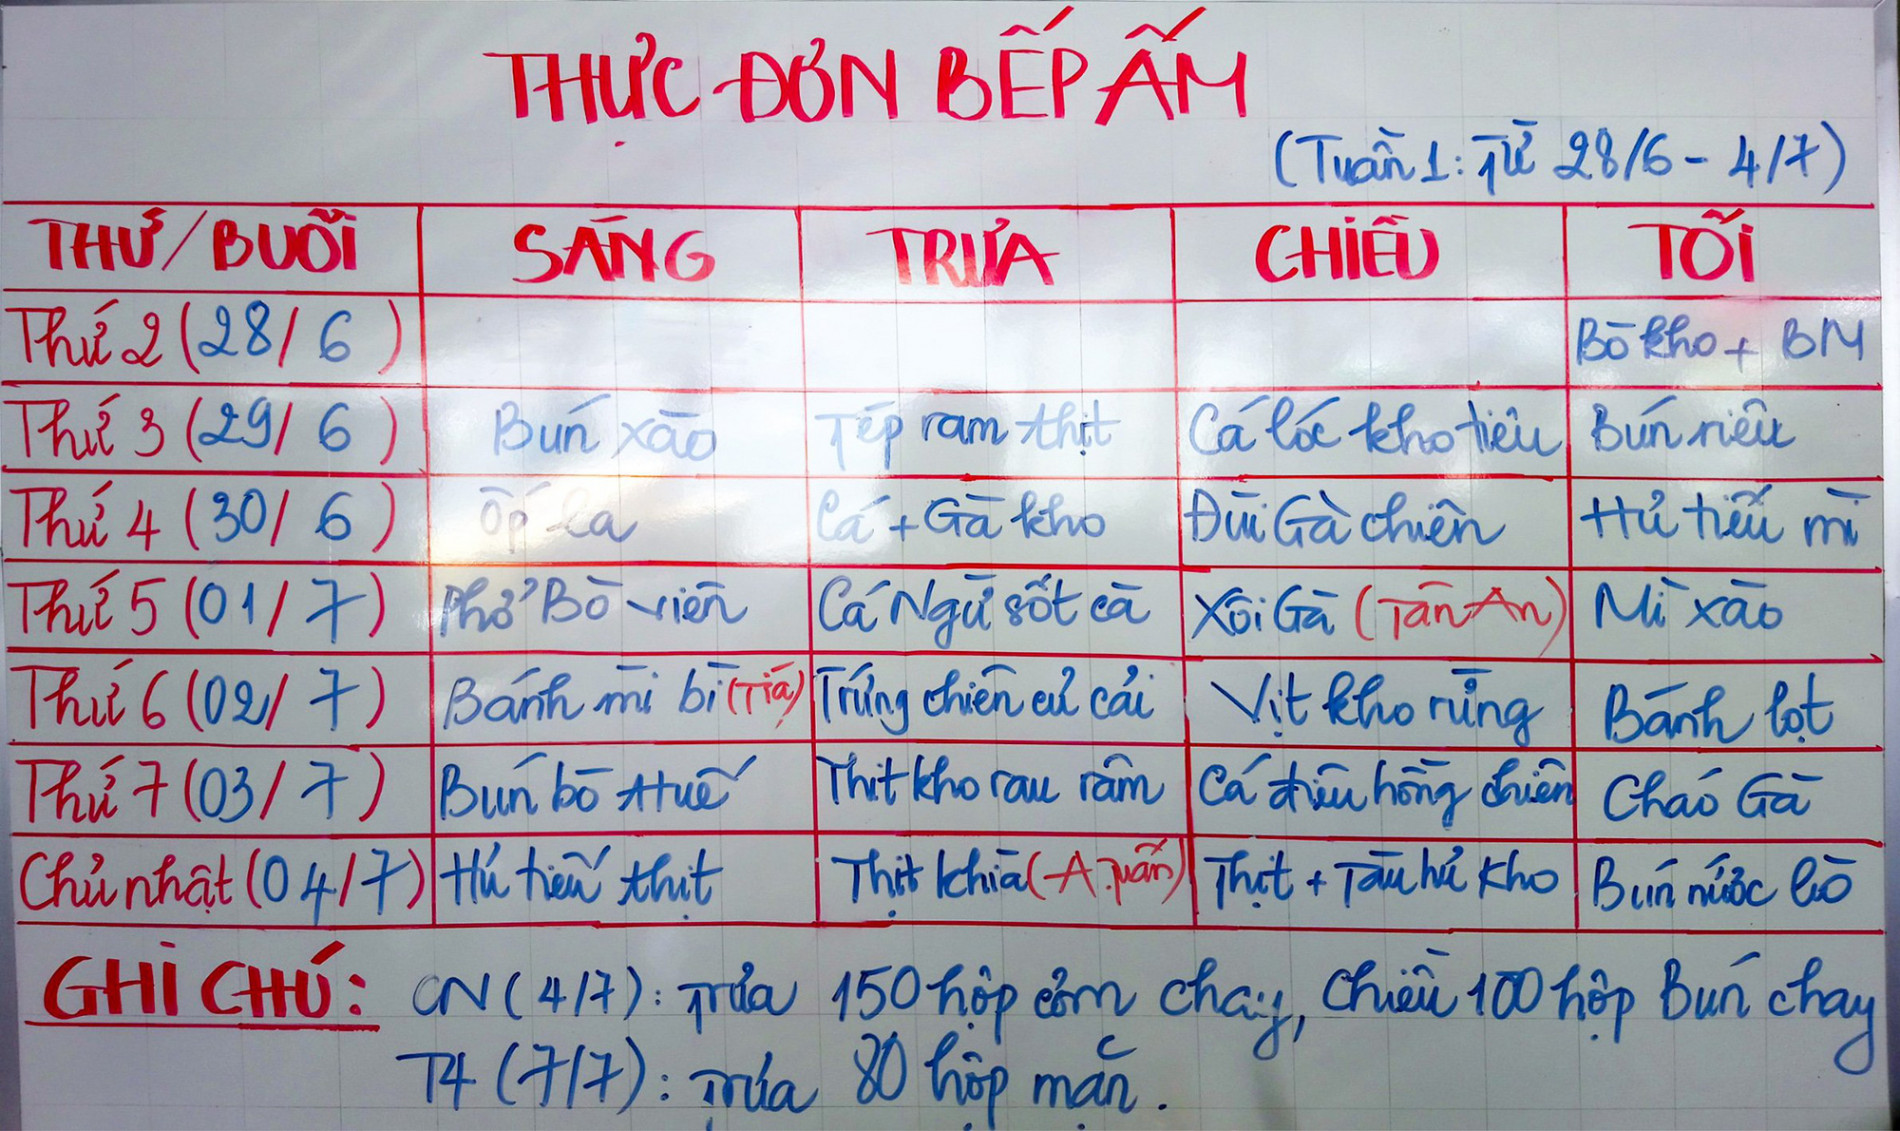 THỰC ĐƠN BẾP ẤM
(Tuần 1: Từ 28/6 - 4/7)
THỨ/BUỔI SÁNG TRƯA CHIỀU TỐI
Thứ 2 (28/6) Bò kho + BM
Thứ 3 (29/6) Bún xào Tép ram thịt Cá lóc kho tiêu Bún riêu
Thứ 4 (30/6) Ốp la Cá + Gà kho Đùi Gà chiên Hủ tiếu mì
Thứ 5 (01/7) Phở Bò viên Cá Ngừ sốt cà Xôi Gà (Tân An) Mì xào
Thứ 6 (02/7) Bánh mì bì (Tía) Trứng chiên củ cải Vịt kho rừng Bánh lọt
Thứ 7 (03/7) Bún bò Huế Thịt kho rau răm Cá diêu hồng chiên Cháo Gà
Chủ nhật (04/7) Hủ tiếu thịt Thịt khìa (A.Tuấn) Thịt + Tàu hủ kho Bún nước lèo
GHI CHÚ: CN (4/7): Trưa 150 hộp cơm chay, Chiều 100 hộp Bún chay
T4 (7/7): Trưa 80 hộp mặn.